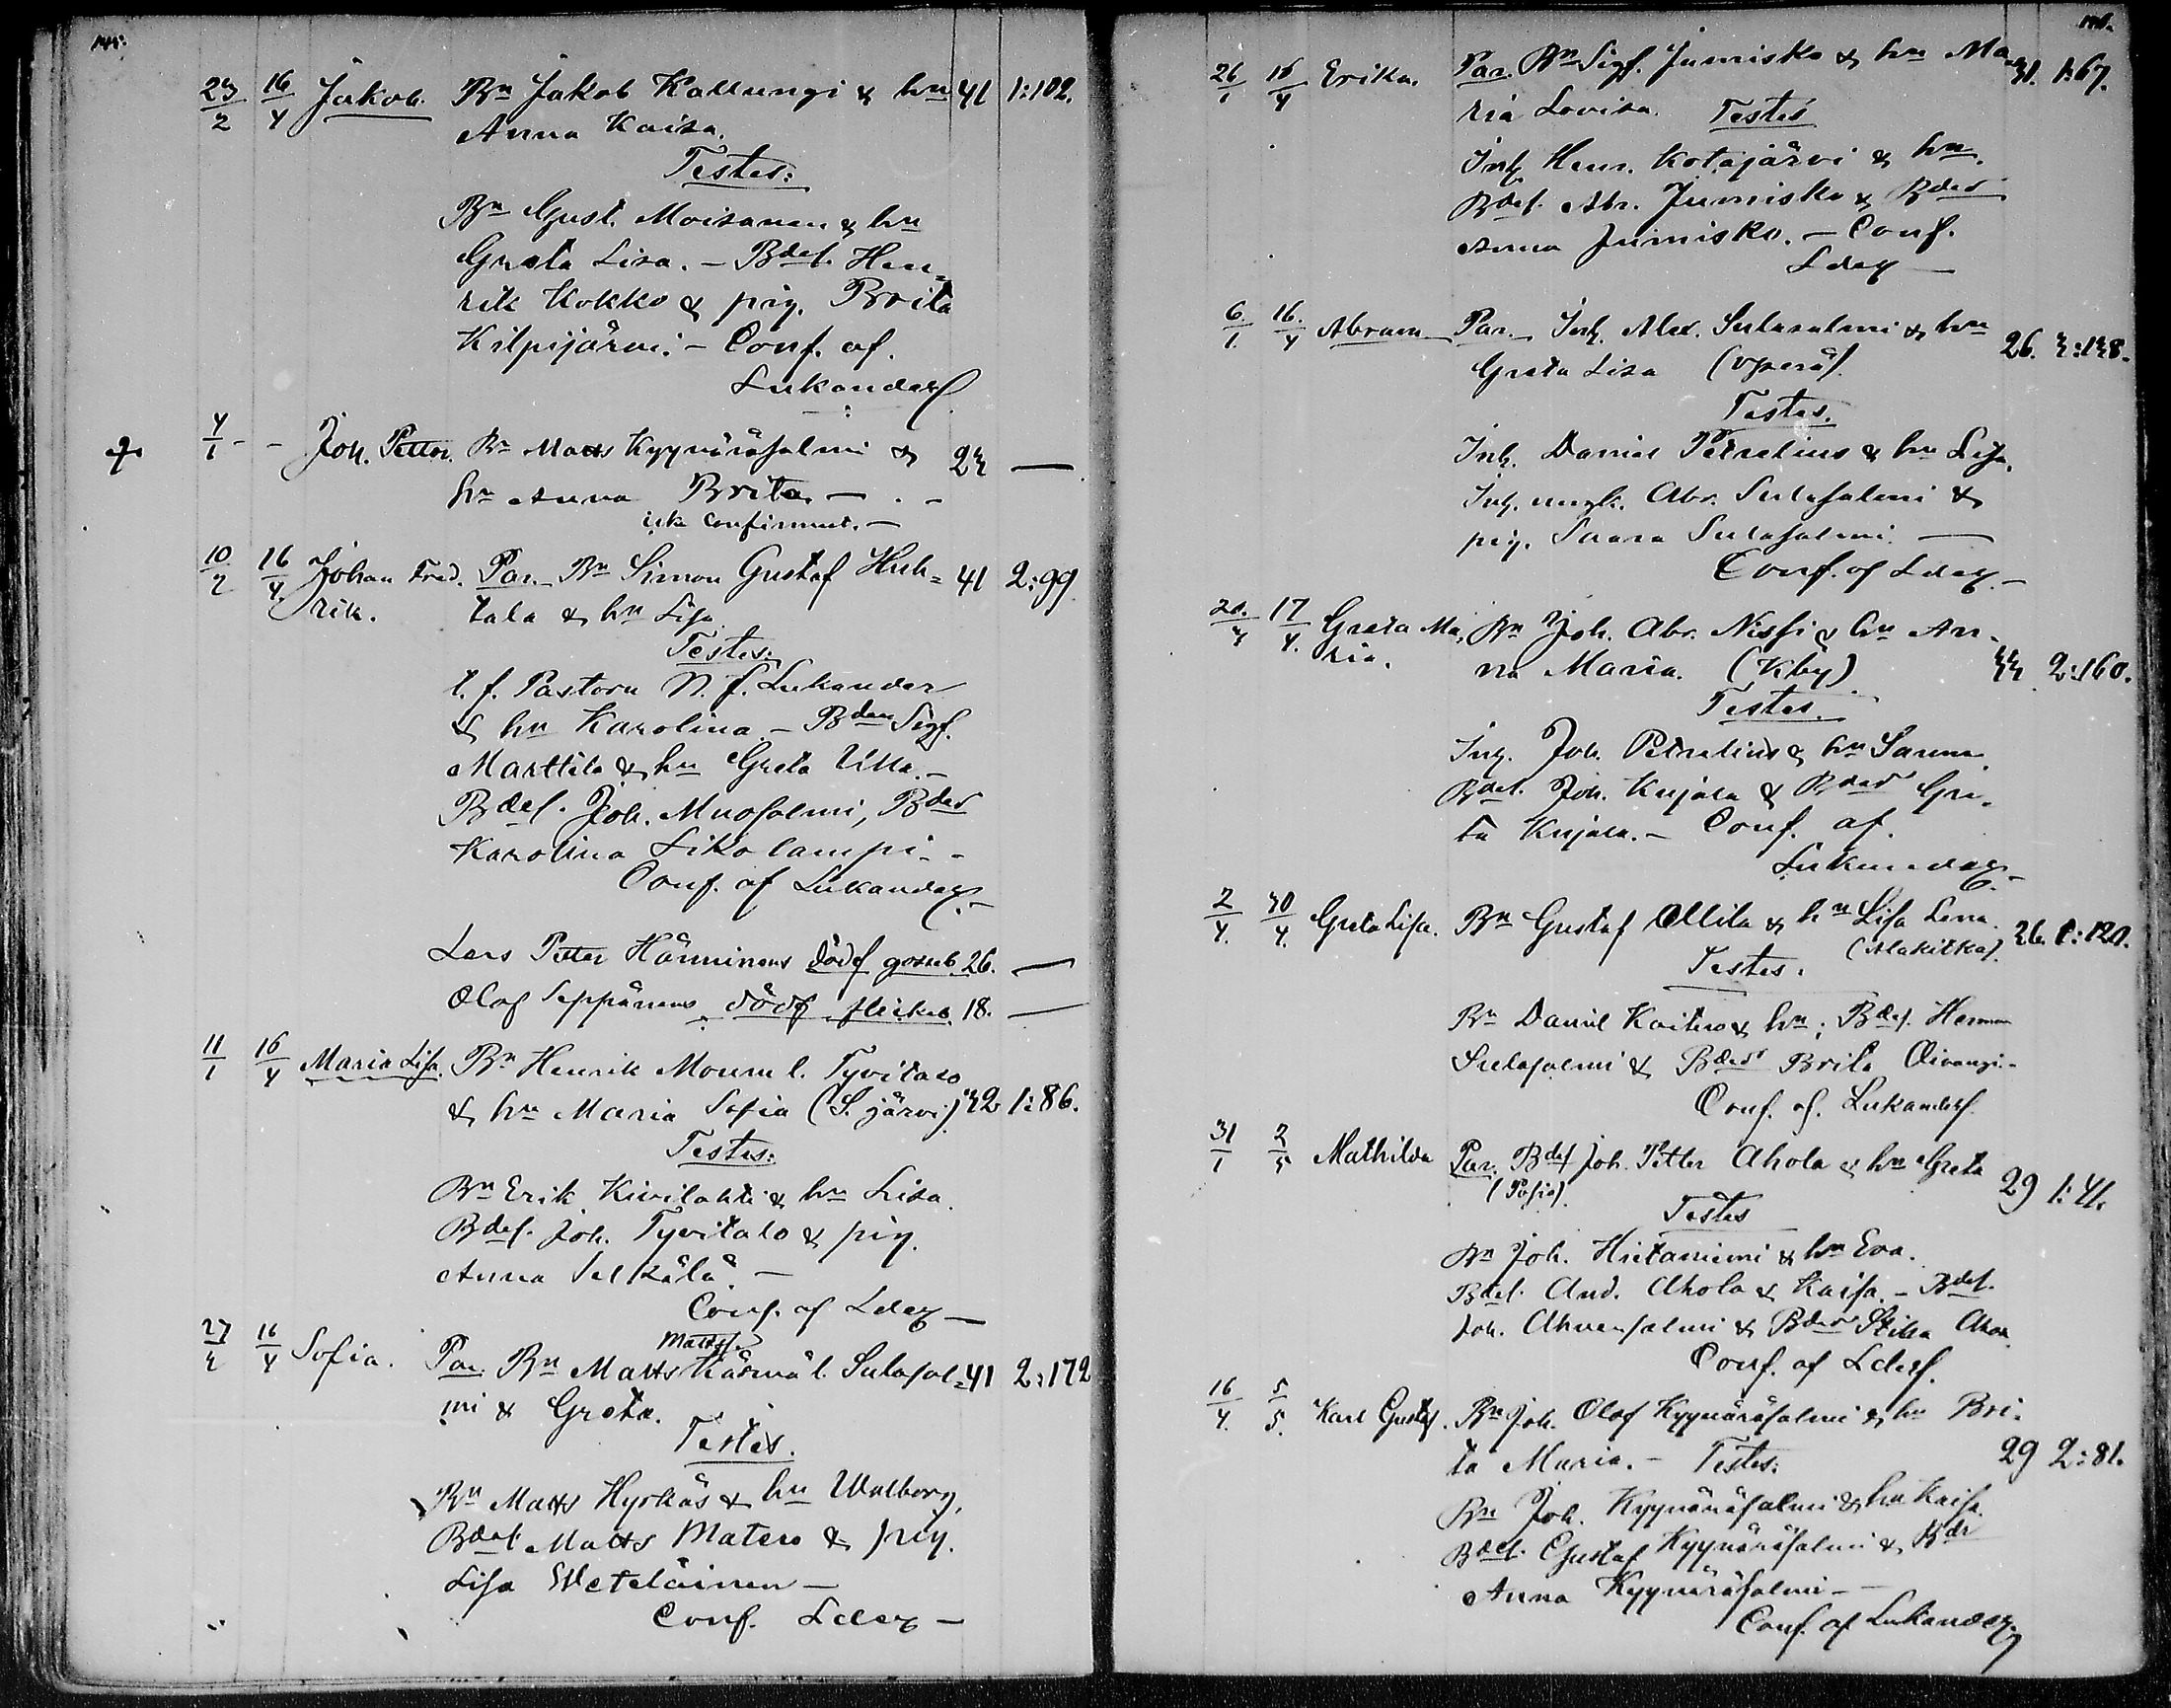 23/2 16/4 Jakob. Bn Jakob Kallungi & hu 41 1:102.
Anna Kaisa.
Testes:
Bn Gust. Moisanen & hu
Greta Lisa. – Bdes. Hen=
rik Kokko & pig. Brita
Kilpijärvi. – Conf. af.
Lukander
4/1 - - Joh. Petter. Bn Matts Kyynäräsalmi & 23 —
hu Anna Brita. —
icke confirmerat. —
10/2 16/4 Johan Fred. Par. Bn Simon Gustaf Huh= 41 2:99
rik. tala & hu Lisa
Testes:
t. f. Pastorn N. J. Lukander
& hu Karolina. – Bden Sigf.
Marttila & hu Greta Ulla. –
Bdes. Joh. Muosalmi, Bdes
Karolina Sikolampi. -
Conf. af Lukander –
Lars Petter Hänninens dödf gosseb. 26. —
Olof Seppänens dödf. flickeb. 18. —
11/1 16/4 Maria Lisa. Bn Henrik Mourul. Tyvitalo
& hu Maria Sofia (S. järvi) 32 1:86.
Testes:
Bn Erik Kivilahti & hu Lisa.
Bdes. Joh. Tyvitalo & pig.
Anna Selkälä. —
Conf. af Lder —
Mattss.
27/2 16/4 Sofia. Par. Bn Matts Kärnä l. Sulasal= 41 2:172
mi & Greta.
Testes.
Bn Matts Hyrkäs & hu Walborg,
Bdes. Matts Matero & pig.
Lisa Weteläinen —
Conf. Lder —
26/1 16/4 Erika. Par. Bn Sigf. Jumisko & hu Ma= 31. 1:67.
ria Lovisa. Testes
Inh. Henr. Kotajärvi & hu.
Bdes. Abr. Jumisko & Bdes
Anna Jumisko. – Conf.
Lder —
6/1. 16/4 Abram Par. Inh. Alex. Sulasalmi & hu 26. 3:138.
Greta Lisa
Testes.
Inh. Daniel Petrelius & hu Lisa.
Inh. ungk. Abr. Sulasalmi &
pig. Saara Sulasalmi. —
Conf. af Lder. –
20/3 17/4. Greta Ma= Bn Joh. Abr. Nissi & hu An=
ria. na Maria. (Kby) 33 2:160.
Testes.
Inh. Joh. Petrelius & hu Sanna.
Bdes. Joh. Kujala & Bdes Gre=
ta Kujala. – Conf. af.
Lukander –
2/4. 30/4. Greta Lisa. Bn Gustaf Ollila & hu Lisa Lena. 36. 1:120.
(Alakitka).
Testes.
Bn Daniel Kaitero & hu; Bdes. Herman
Sulasalmi & Bdes Brita Oivangi. –
Conf. af. Lukander.
31/1 2/5 Mathilda Par. Bdes Joh. Petter Ahola & hu Greta 29 1:41.
(Posio).
Testes
Bn Joh. Hietaniemi & hu Eva.
Bdes. And. Ahola & Kaisa. – Bdes.
Joh. Ahvensalmi & Bdes Stina Ahola.
Conf. af Lder.
16/4. 5/5. Karl Gustaf. Bn Joh. Olof Kyynäräsalmi & hu Bri=
ta Maria. – Testes: 29 2:81.
Bn Joh. Kyynäräsalmi & hu Kaisa.
Bdes. Gustaf Kyynäräsalmi & Bdr
Anna Kyynäräsalmi –
Conf. af Lukander